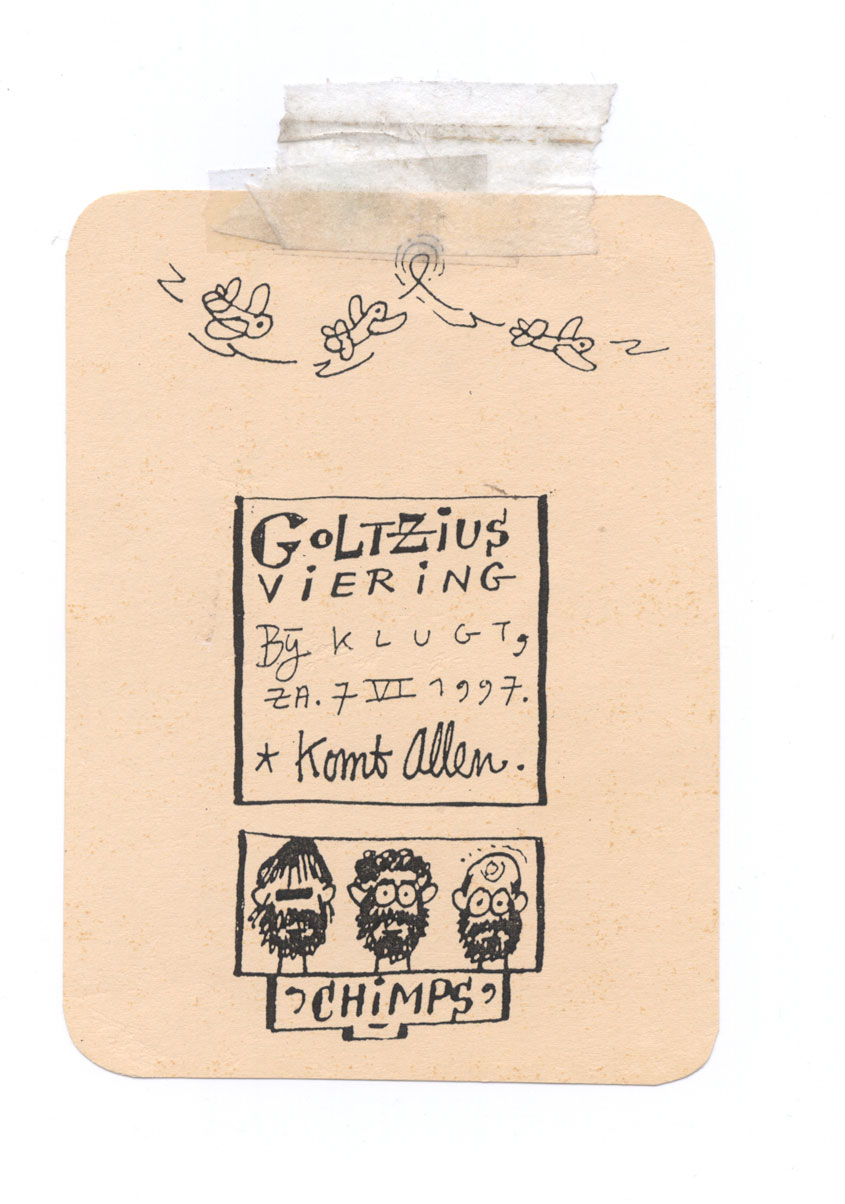 GOLTZIUS
ViERiNG
Bij KLUGT,
ZA. 7 VI 1997.
* Komt Allen.
, CHiMPS ,